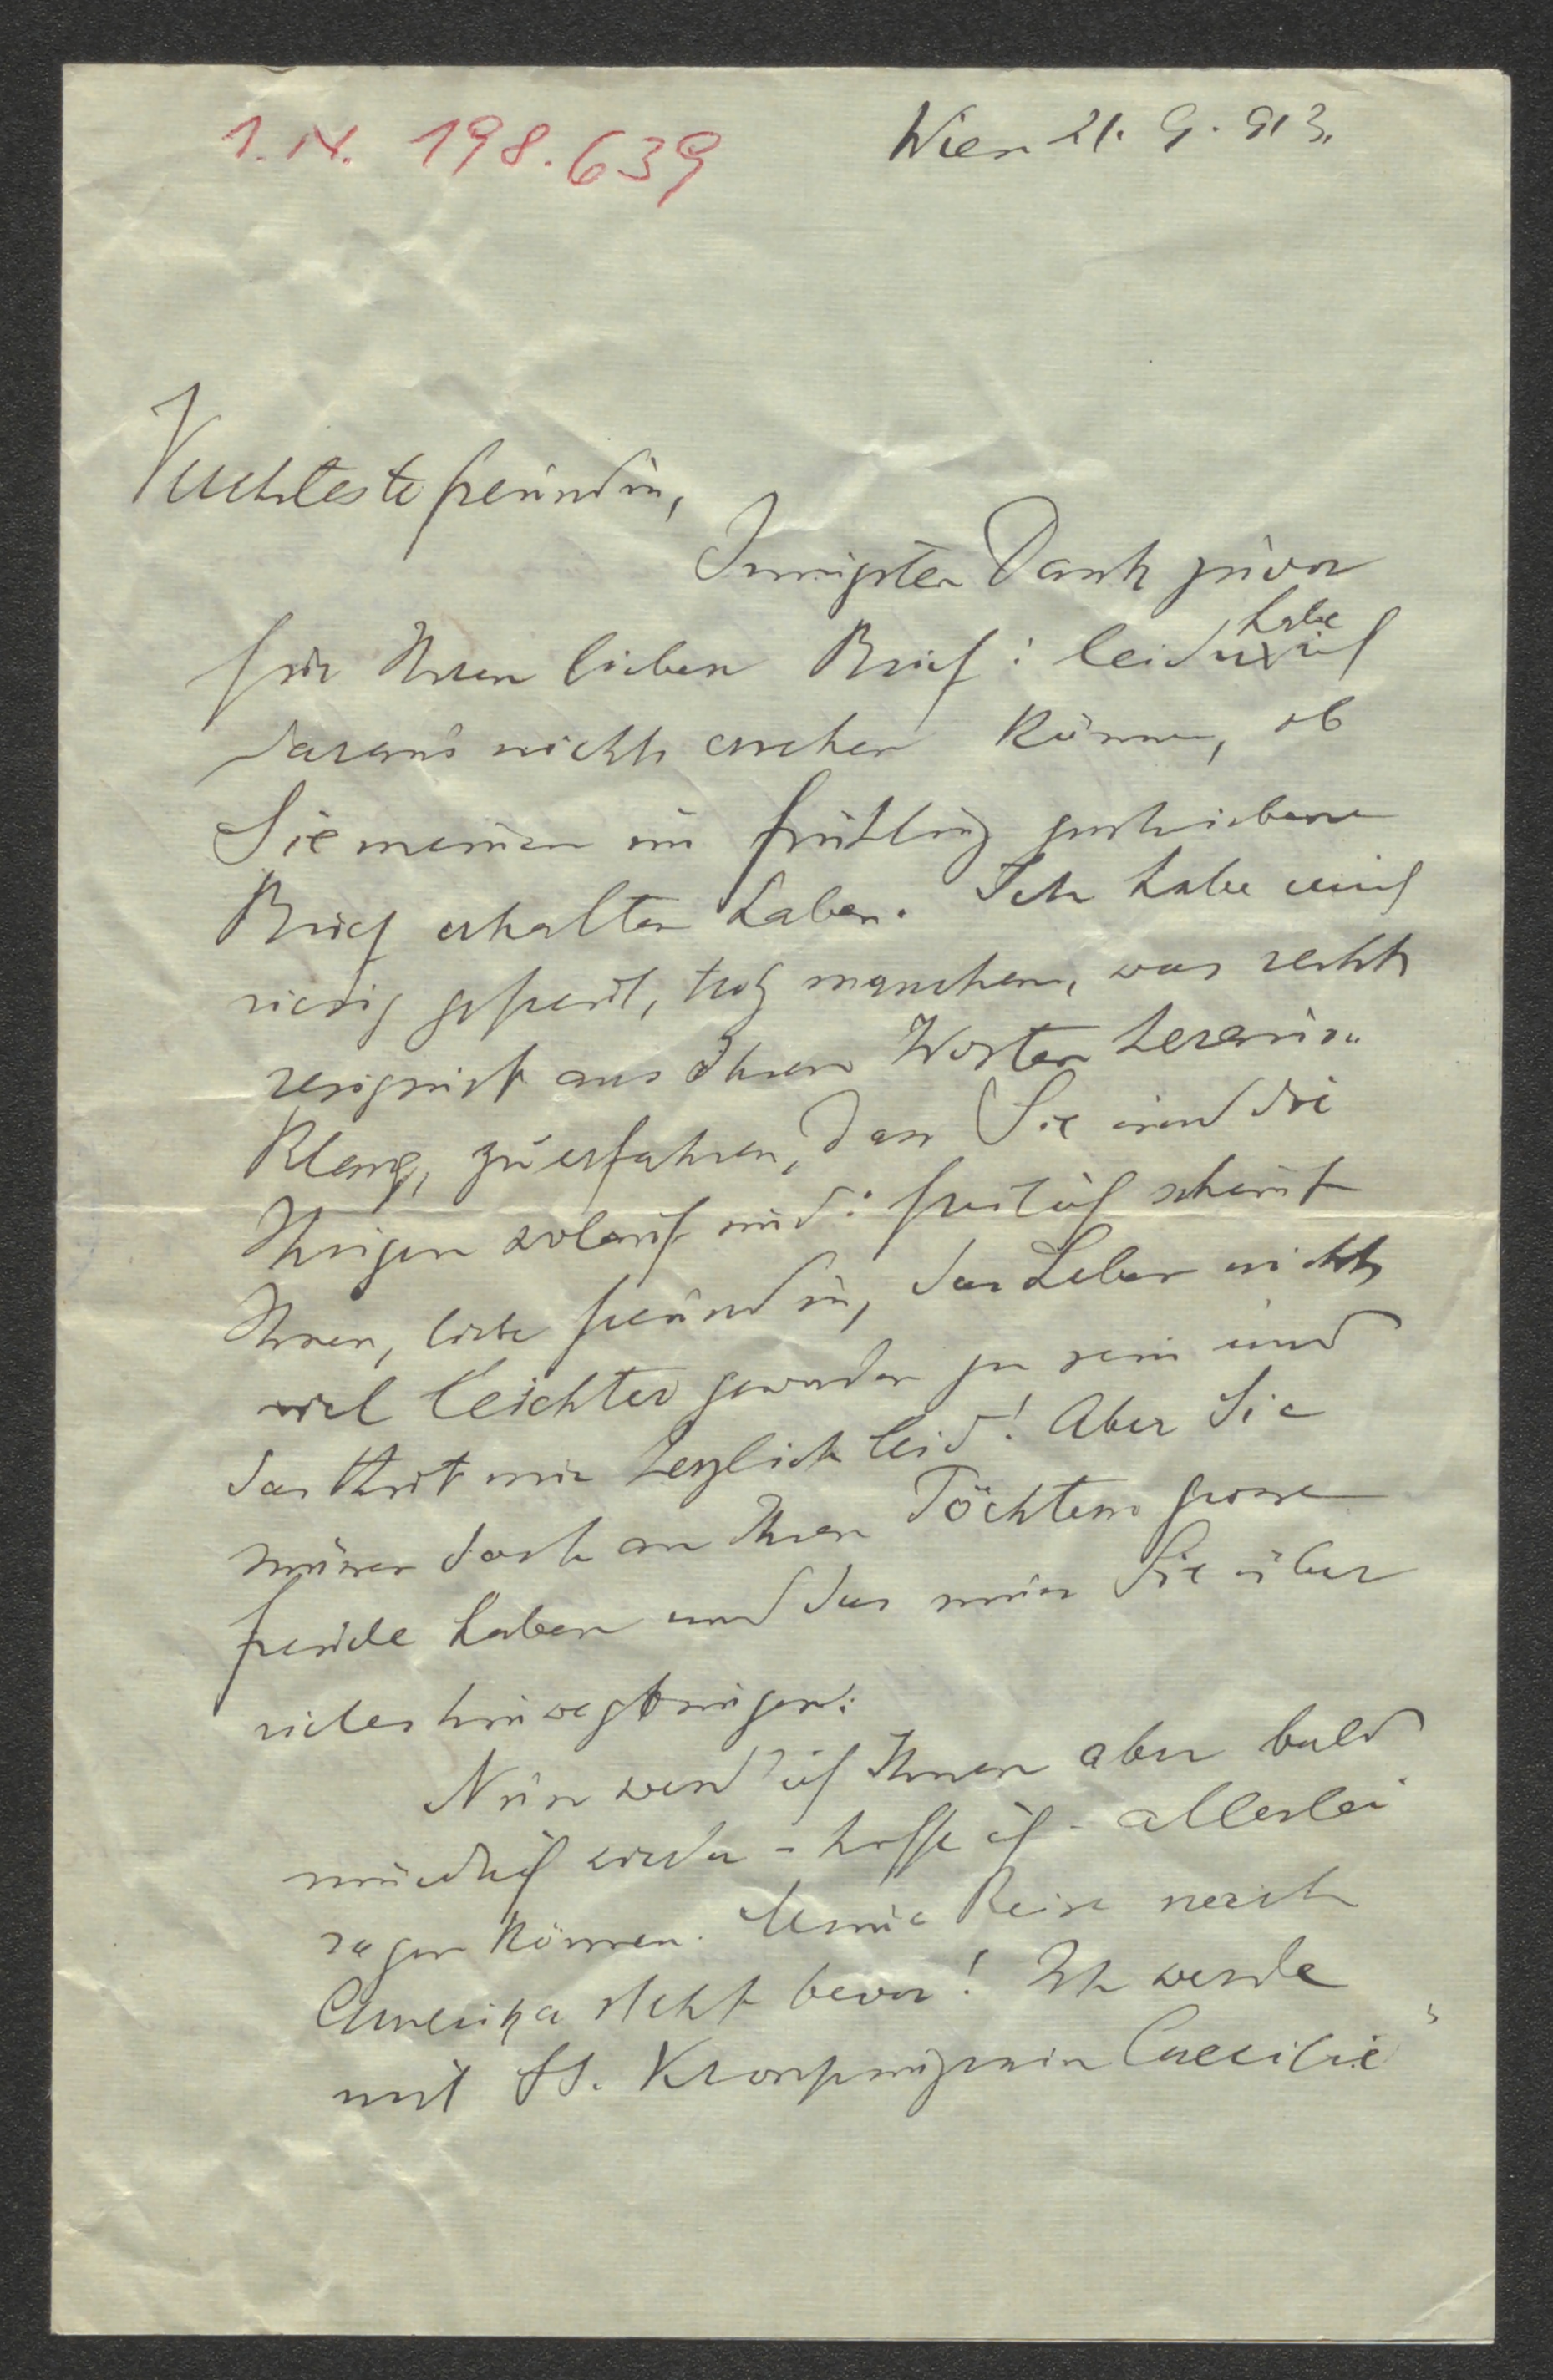 I.N. 198.639
Wien 21. 9. 913.
Verehrteste Freundin,
Innigsten Dank zuvor
für Ihren lieben Brief: leider habe ich
daraus nicht ersehen können, ob
Sie meinen im Frühling geschriebenen
Brief erhalten haben. Ich habe mich
riesig gefreut, trotz manchem, was recht
resignirt aus Ihren Worten heraus-
klang, zu erfahren, dass Sie und die
Ihrigen wolauf sind: freilich scheint
Ihnen, liebe Freundin, das Leben nicht
viel leichter geworden zu sein und
das thut mir herzlich leid! Aber Sie
müssen doch an Ihren Töchtern grosse
Freude haben und das muss Sie über
vieles hinwegbringen.
Nun werd' ich Ihnen aber bald
mündlich wieder - hoffe ich - allerlei
sagen können. Meine Reise nach
Amerika steht bevor! Ich werde
mit SS. Kronprinzessin Caecilie"